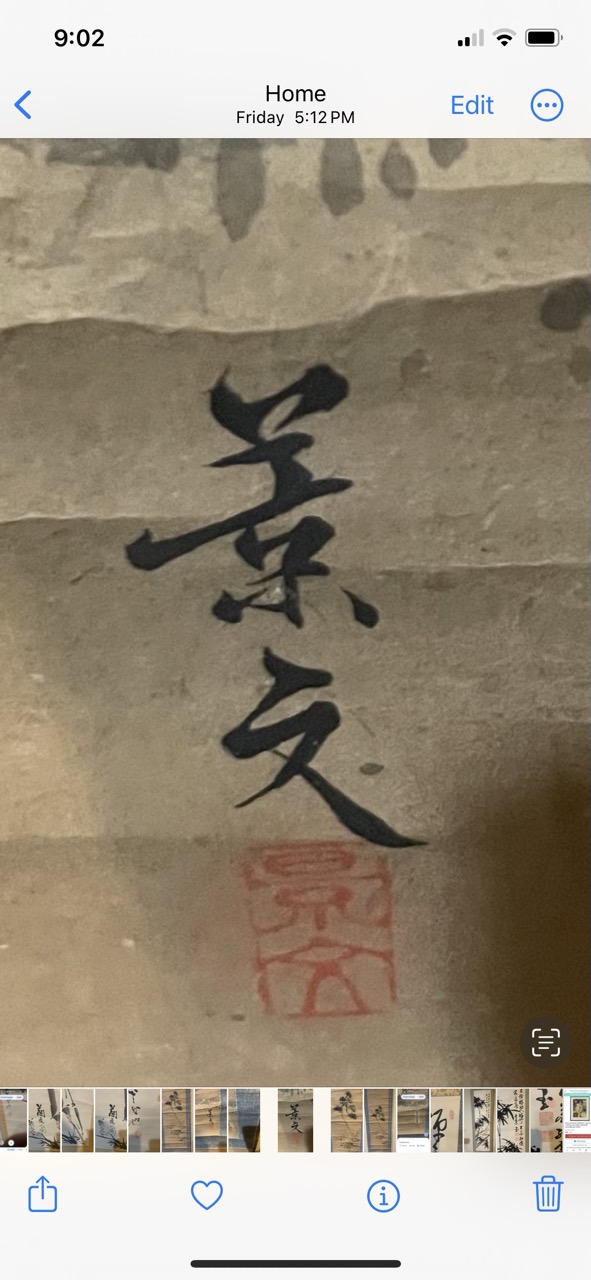 9:02
Home
Edit
Friday 5:12 PM
景文
景文